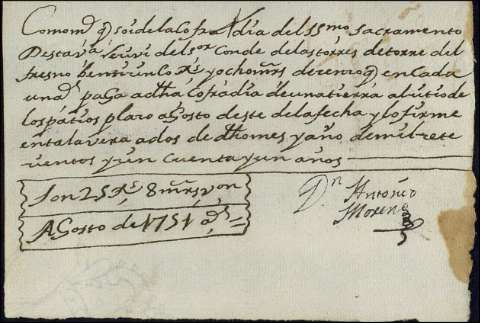 Como m.º q̃ soi de la Cofradia del SSmo Sacramento
Desta va. reziui del Sor Conde de las torres de torre del
fresno beinti zinco Rs y ocho mrs de renio q̃ en cada
un aº paga a dha Cofradia de una tierra al sitio de
los patios plazo Agosto deste de la fecha y lo firme
en talavera a dos de dho mes y año de mil sete
cientos y zin cuenta y un años
Son 25 Rs 8 mrs von
Agosto de 1751 as
Dn Antonio
Moreno